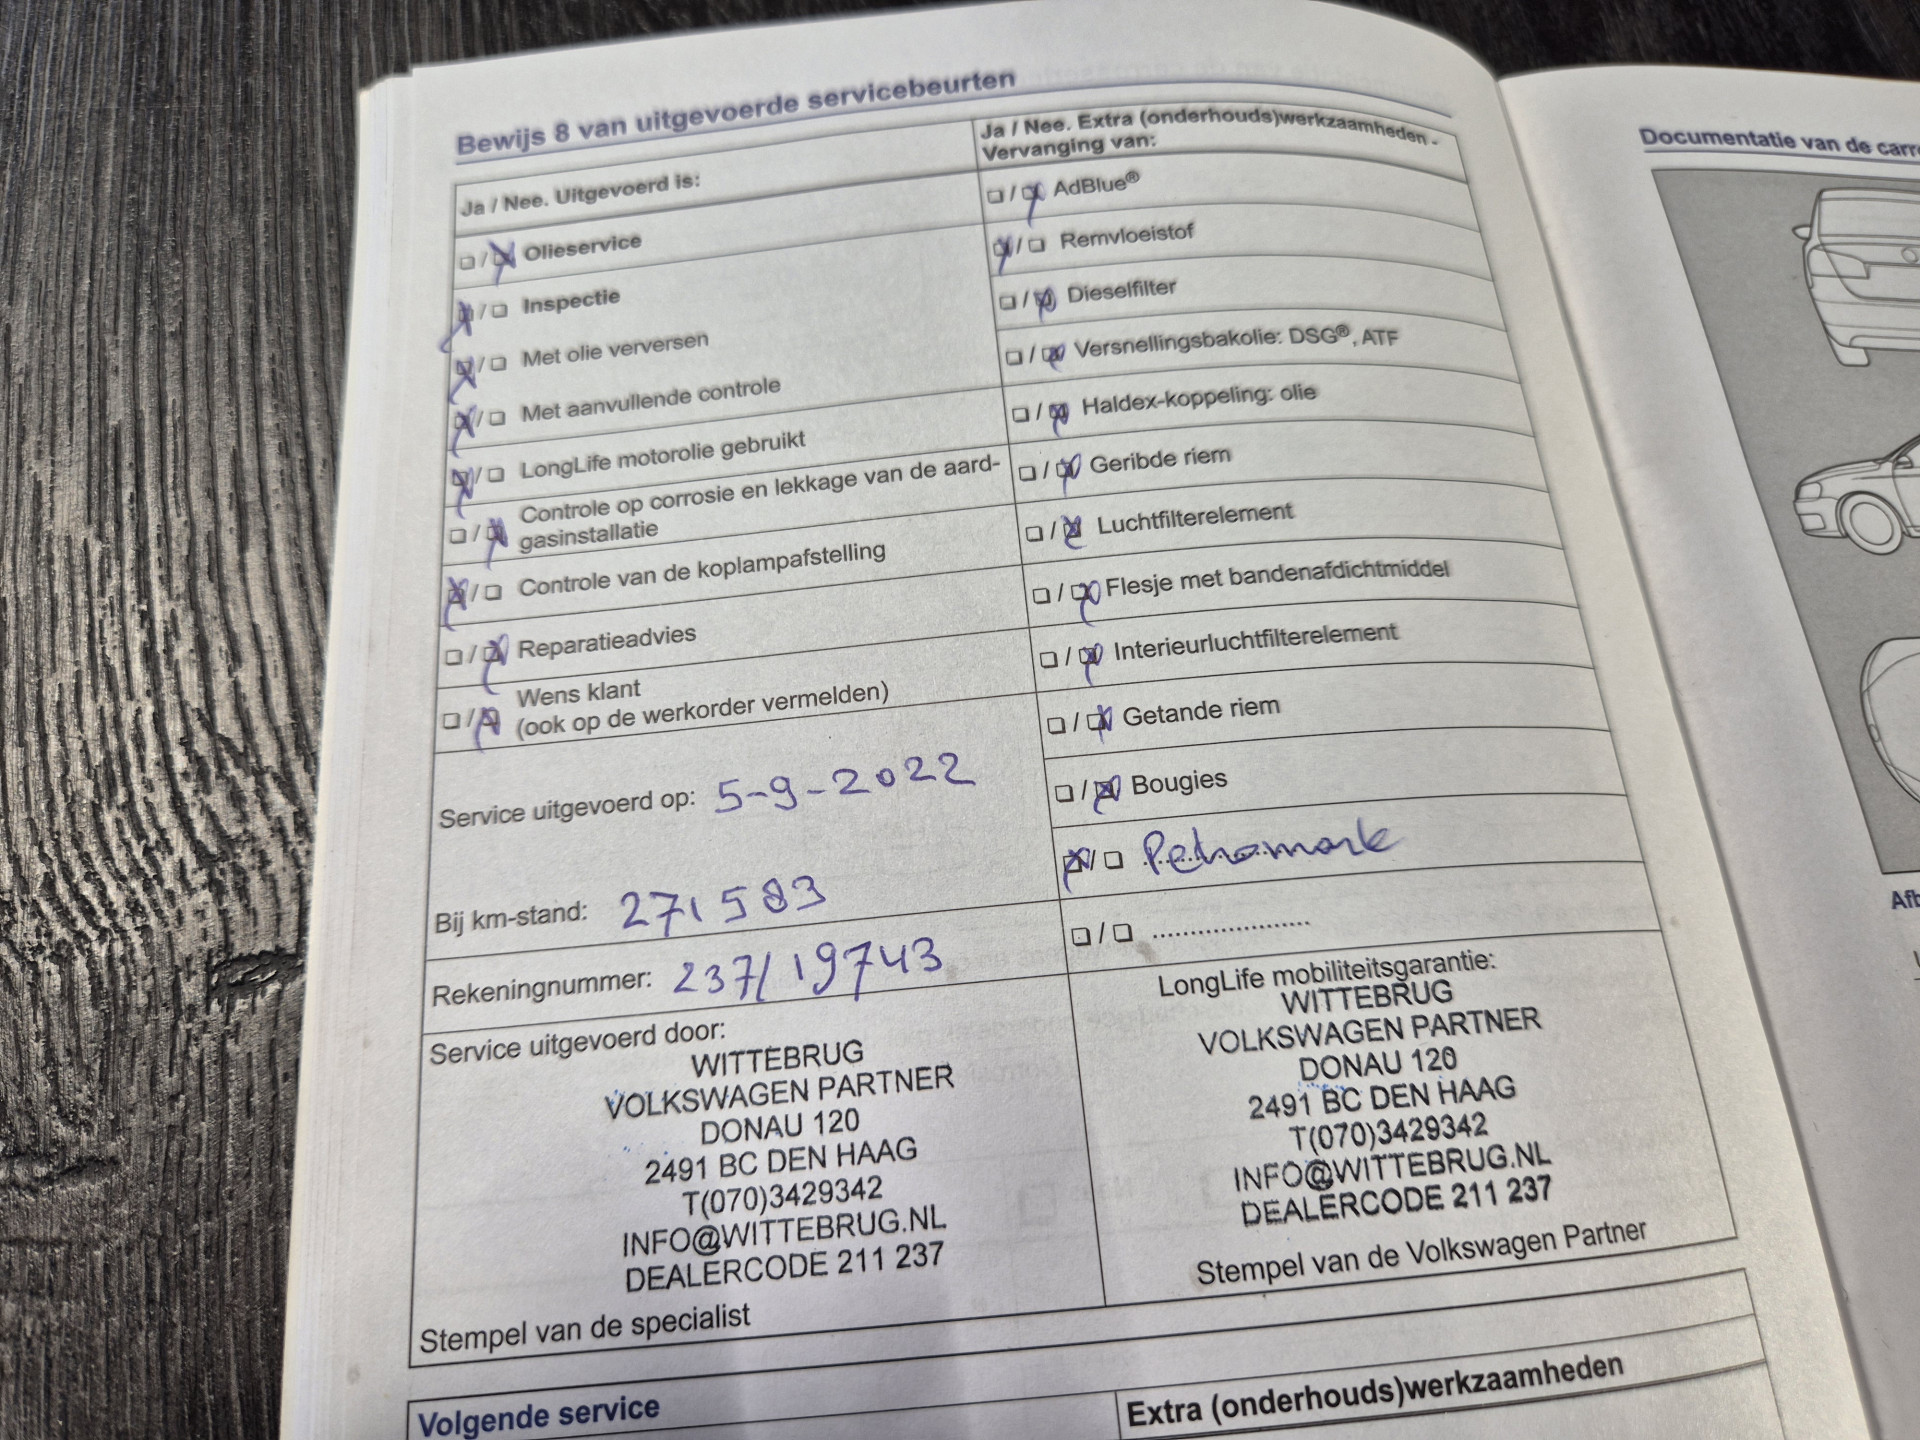 Bewijs 8 van uitgevoerde servicebeurten
Ja / Nee. Uitgevoerd is:
☐ / ☒ Olieservice
☒ / ☐ Inspectie
☒ / ☐ Met olie verversen
☒ / ☐ Met aanvullende controle
☒ / ☐ LongLife motorolie gebruikt
☐ / ☒ Controle op corrosie en lekkage van de aard-
gasinstallatie
☒ / ☐ Controle van de koplampafstelling
☐ / ☒ Reparatieadvies
☐ / ☒ Wens klant
(ook op de werkorder vermelden)
Service uitgevoerd op: 5-9-2022
Bij km-stand: 271583
Rekeningnummer: 237/19743
Service uitgevoerd door:
WITTEBRUG
VOLKSWAGEN PARTNER
DONAU 120
2491 BC DEN HAAG
T(070)3429342
INFO@WITTEBRUG.NL
DEALERCODE 211 237
Stempel van de specialist
Ja / Nee. Extra (onderhouds)werkzaamheden -
Vervanging van:
☐ / ☒ AdBlue®
☒ / ☐ Remvloeistof
☐ / ☒ Dieselfilter
☐ / ☒ Versnellingsbakolie: DSG®, ATF
☐ / ☒ Haldex-koppeling: olie
☐ / ☒ Geribde riem
☐ / ☒ Luchtfilterelement
☐ / ☒ Flesje met bandenafdichtmiddel
☐ / ☒ Interieurluchtfilterelement
☐ / ☒ Getande riem
☐ / ☒ Bougies
☒ / ☐ Petromark
☐ / ☐ ......................
LongLife mobiliteitsgarantie:
WITTEBRUG
VOLKSWAGEN PARTNER
DONAU 120
2491 BC DEN HAAG
T(070)3429342
INFO@WITTEBRUG.NL
DEALERCODE 211 237
Stempel van de Volkswagen Partner
Volgende service
Extra (onderhouds)werkzaamheden
Documentatie van de carr
Afb